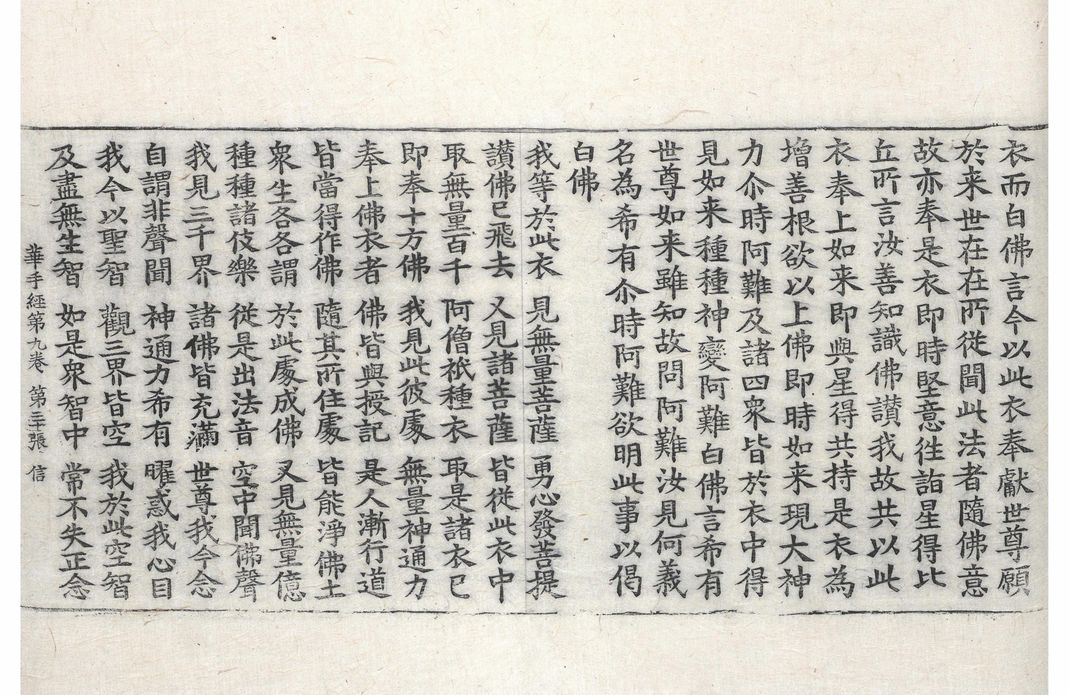 衣而白佛言今以此衣奉獻世尊願
於来世在在所從聞此法者隨佛意
故亦奉是衣即時堅意徃詣星得比
丘所言汝善知識佛讃我故共以此
衣奉上如来即與星得共持是衣為
增善根欲以上佛即時如来現大神
力尒時阿難及諸四衆皆於衣中得
見如来種種神變阿難白佛言希有
世尊如来雖知故問阿難汝見何義
名為希有尒時阿難欲明此事以偈
白佛
我等於此衣 見無量菩薩 勇心發菩提
讃佛已飛去 又見諸菩薩 皆從此衣中
取無量百千 阿僧祇種衣 取是諸衣已
即奉十方佛 我見此彼處 無量神通力
奉上佛衣者 佛皆與授記 是人漸行道
皆當得作佛 隨其所住處 皆能淨佛土
衆生各各謂 於此處成佛 又見無量億
種種諸伎樂 從是出法音 空中聞佛聲
我見三千界 諸佛皆充滿 世尊我今念
自謂非聲聞 神通力希有 曜惑我心目
我今以聖智 觀三界皆空 我於此空智
及盡無生智 如是衆智中 常不失正念
華手經第九卷 第二十張 信